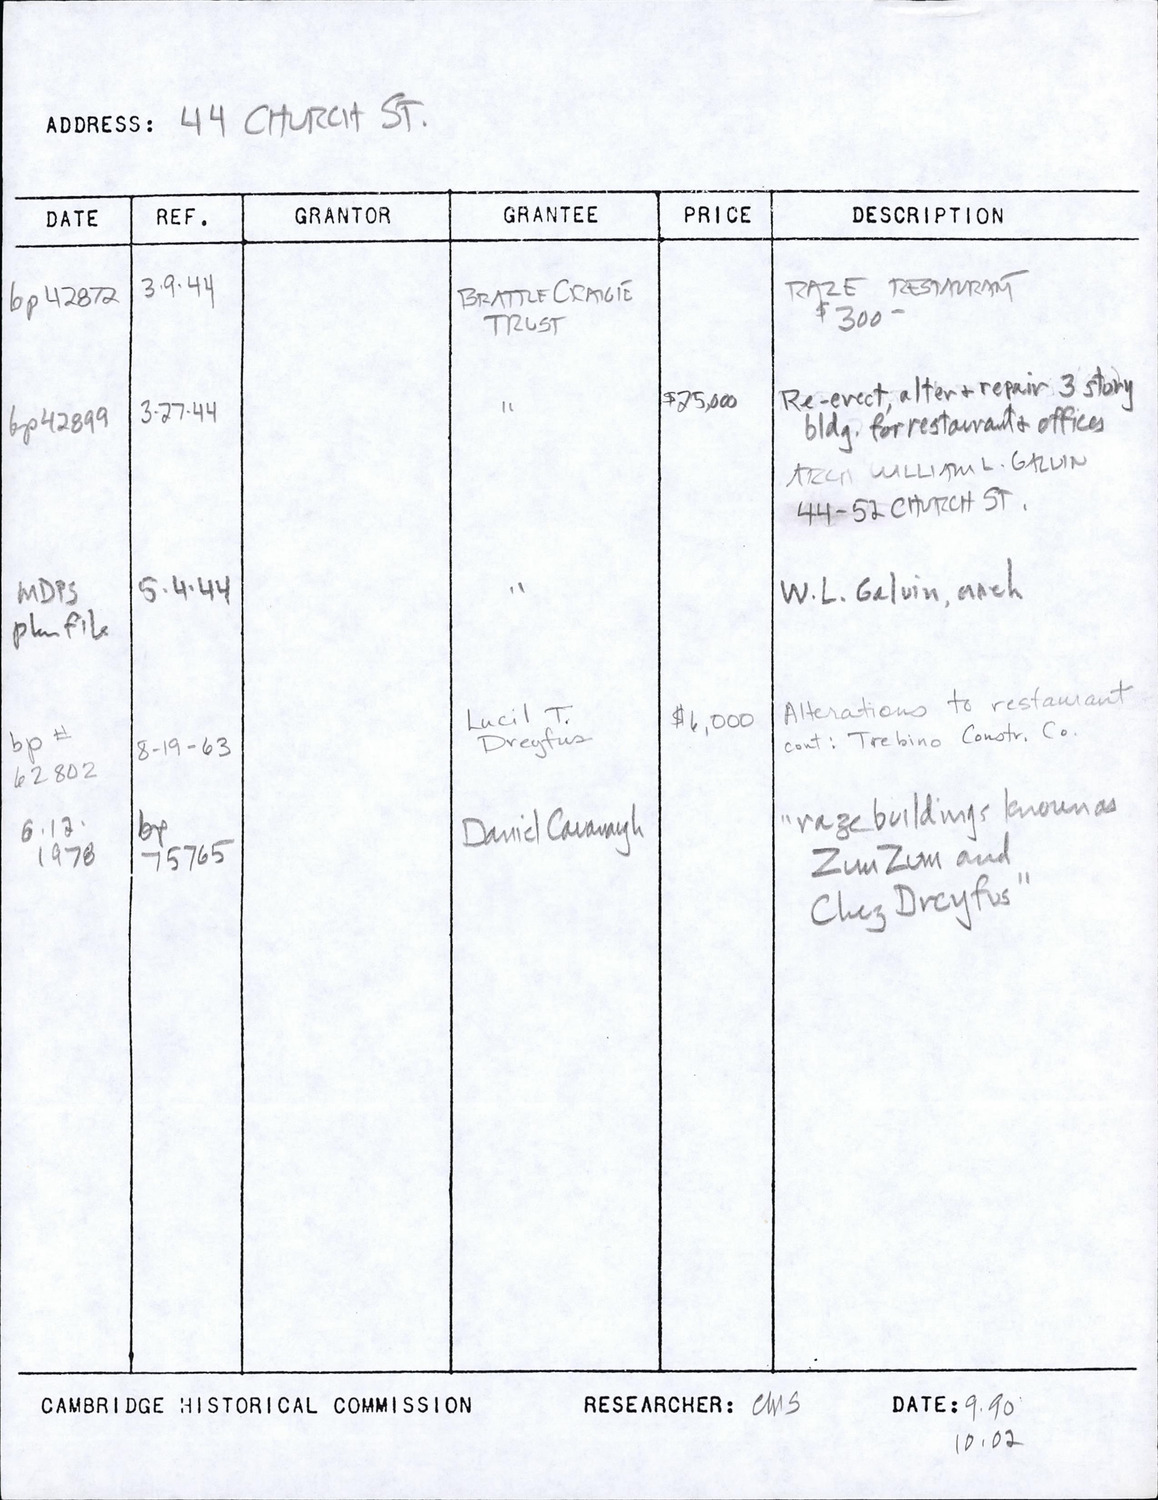 ADDRESS: 44 CHURCH ST.
DATE REF. GRANTOR GRANTEE PRICE DESCRIPTION
bp 42872 3·9·44 BRATTLE CRAIGIE RAZE RESTAURANT
TRUST $300-
bp 42899 3·27·44 " $25,000 Re-erect, alter + repair 3 story
bldg. for restaurant + offices
ARCH WILLIAM L. GALVIN
44-52 CHURCH ST.
MDPS 5·4·44 " W.L. Galvin, arch
plan file
bp # 8-19-63 Lucil T. $6,000 Alterations to restaurant
62802 Dreyfus cont: Trebino Constr. Co.
6·12· bp Daniel Cavanagh "raze buildings known as
1978 75765 Zum Zum and
Chez Dreyfus"
CAMBRIDGE HISTORICAL COMMISSION RESEARCHER: CMS DATE: 9.90
10.02